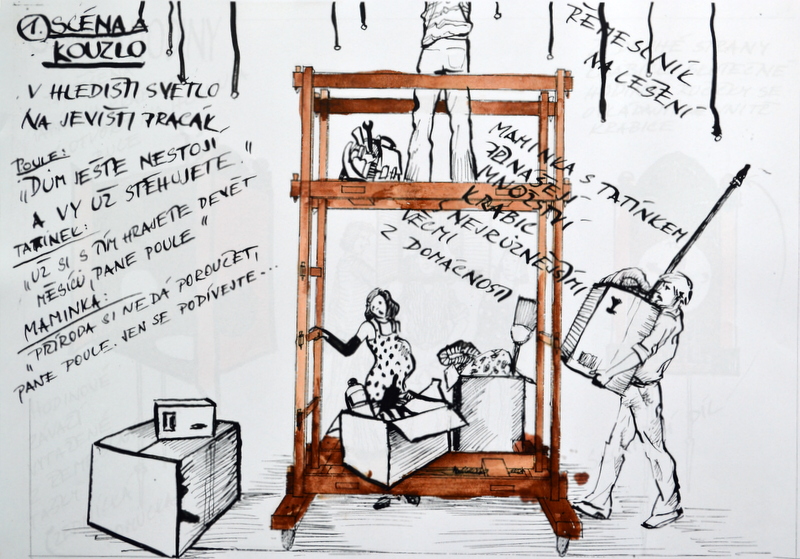 1. SCÉNA A
KOUZLO
V HLEDIŠTI SVĚTLO
NA JEVIŠTI PRACÁK,
POULE:
„DŮM JEŠTE NESTOJÍ
A VY UŽ STĚHUJETE."
TATÍNEK:
„UŽ SI S TÍM HRAJETE DEVĚT
MĚSÍCŮ, PANE POULE"
MAMINKA:
„PŘÍRODA SI NEDÁ POROUČET,
PANE POULE. JEN SE PODÍVEJTE...
ŘEMESLNÍK
NA LEŠENÍ
MAMINKA S TATÍNKEM
DONAŠEJÍ
MNOŽSTVÍ
KRABIC
S NEJRŮZNĚJŠÍMI
VĚCMI
Z DOMÁCNOSTI